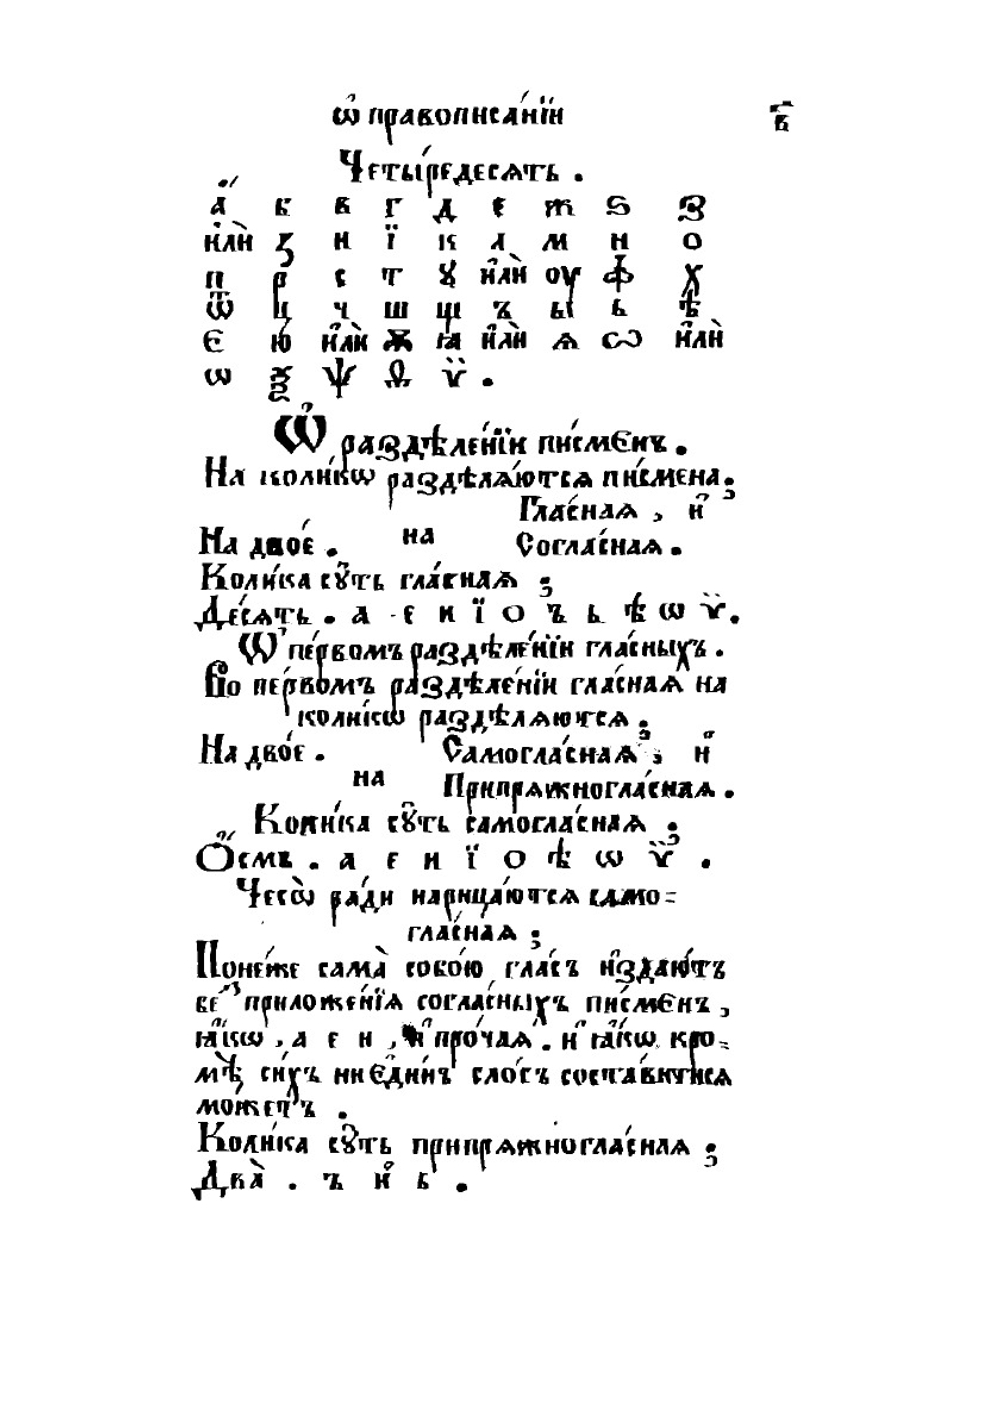 ѡ҆ правописа́нїи в҃
Четы́редесѧть .
а҆́ б в г д е ж ѕ з
и҆лѝ ꙁ и ї к л м н о
п р с т ꙋ и҆лѝ оу ф х
ѿ ц ч ш щ ъ ы ь ѣ
є ю и҆лѝ ѫ ꙗ и҆лѝ ѧ ѡ и҆лѝ
ѡ ѯ ѱ ѳ ѵ̈ .
Ѡ҆ раздѣле́нїи пи́смєнъ .
На коли́кѡ раздѣлѧ́ютсѧ пи́смена ;
Гла́снаѧ , и҆
На двое́ . на Согла́снаѧ .
Коли́ка сꙋ́ть гла́снаѧ ;
Де́сѧть . а е и ї о ъ ь ѣ ѡ ѵ̈ .
Ѡ҆ пе́рвомъ раздѣле́нїи гла́сныхъ .
Во пе́рвомъ раздѣле́нїи гла́снаѧ на
коли́кѡ раздѣлѧ́ютсѧ ;
На двое́ . Самогла́снаѧ , и҆
на Припрѧжногла́снаѧ .
Коли́ка сꙋ́ть самогла́снаѧ ;
Ѻ҆́смь . а е и ї о ѣ ѡ ѵ̈ .
Чесѡ̀ ра́ди нарица́ютсѧ само=
гла́снаѧ ;
Поне́же сама̀ собо́ю гла́съ и҆здаю́тъ
беⷥ приложе́нїѧ согла́сныхъ пи́смєнъ ,
ꙗ҆́кѡ , а е и , и҆ про́чаѧ . и҆ ꙗ҆́кѡ кро=
мѣ̀ си́хъ ни є҆ди́нъ сло́гъ соста́витисѧ
мо́жетъ .
Коли́ка сꙋ́ть припрѧжногла́снаѧ ;
Два̀ . ъ и҆ ь .